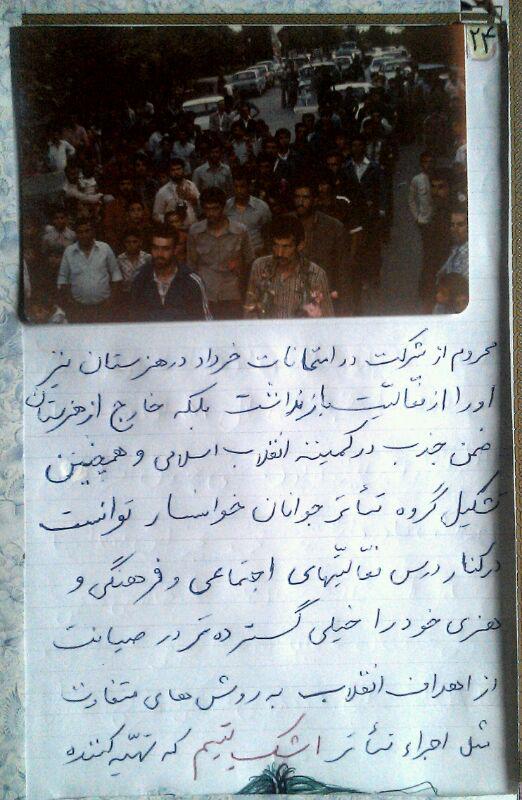 ۲۴
محروم از شرکت در امتحانات خرداد در هنرستان نیز
او را از فعّالیّت بازنداشت بلکه خارج از هنرستان
ضمن جذب در کمیته انقلاب اسلامی و همچنین
تشکیل گروه تئاتر جوانان خوانسار توانست
در کنار درس فعّالیّتهای اجتماعی و فرهنگی و
هنری خود را خیلی گسترده تر در صیانت
از اهداف انقلاب به روش های متفاوت
مثل اجراء تئاتر اشک یتیم که تهیّه کننده